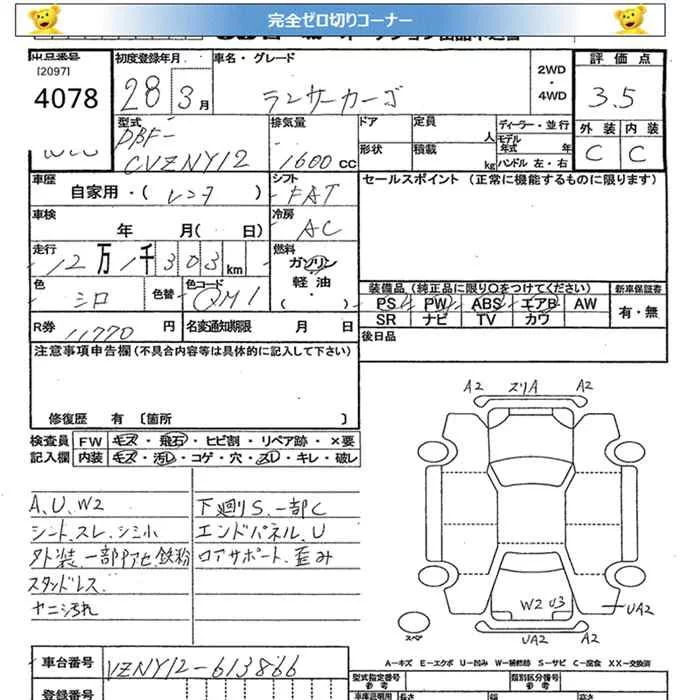 完全ゼロ切りコーナー
出品番号
[2097]
4078
初度登録年月
28 3月
車名・グレード
ランサーカーゴ
2WD
・
4WD
評価点
3.5
外装 内装
C C
型式
DBF-
CVZNY12
排気量
1600cc
ドア 定員 人
形状 積載 kg
ディーラー・並行
モデル年式 年
ハンドル 左・右
車歴
自家用・( レンタ )
シフト
FAT
セールスポイント (正常に機能するものに限ります)
車検
年 月( 日)
冷房
AC
走行
12万1千303km
燃料
ガソリン
軽油
・( )
色
シロ
色替
色コード
QM1
装備品(純正品に限り○をつけてください)
新車保証書
PS PW ABS エアB AW
SR ナビ TV カワ
有・無
R券 11770円
名変通知期限 月 日
後日品
注意事項申告欄(不具合内容等は具体的に記入して下さい)
修復歴 有 〔箇所 〕
検査員 FW キズ・飛石・ヒビ割・リペア跡・×要
記入欄 内装 キズ・汚レ・コゲ・穴・スレ・キレ・破レ
A、U、W2
シート、スレ、シミ小
外装、一部アセ、鉄粉
スタンドレス
ヤニ汚れ
下廻りS、一部C
エンドパネル、U
ロアサポート、歪み
A2 スリA A2
W2 U3
UA2
UA2 A2
スペア
A-キズ E-エクボ U-凹み W-補修跡 S-サビ C-腐食 XX-交換済
車台番号 VZNY12-613866
登録番号
型式指定番号
参考
類別区分番号
参考
車庫証明用 長さ 幅 高さ